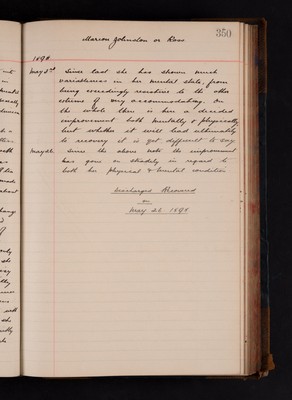 350
Marion Johnston or Ross
1898
May 3rd Since last she has shown much
variableness in her mental state, from
being exceedingly sensitive to the other
extreme of very accommodating. On
the whole there is has a decided
improvement both mentally & physically
but whether it will lead ultimately
to recovery it is yet difficult to say
May 26 Since the above note the improvement
has gone on steadily in regard to
both her physical & mental condition
Discharged Recovered
on
May 26 1898